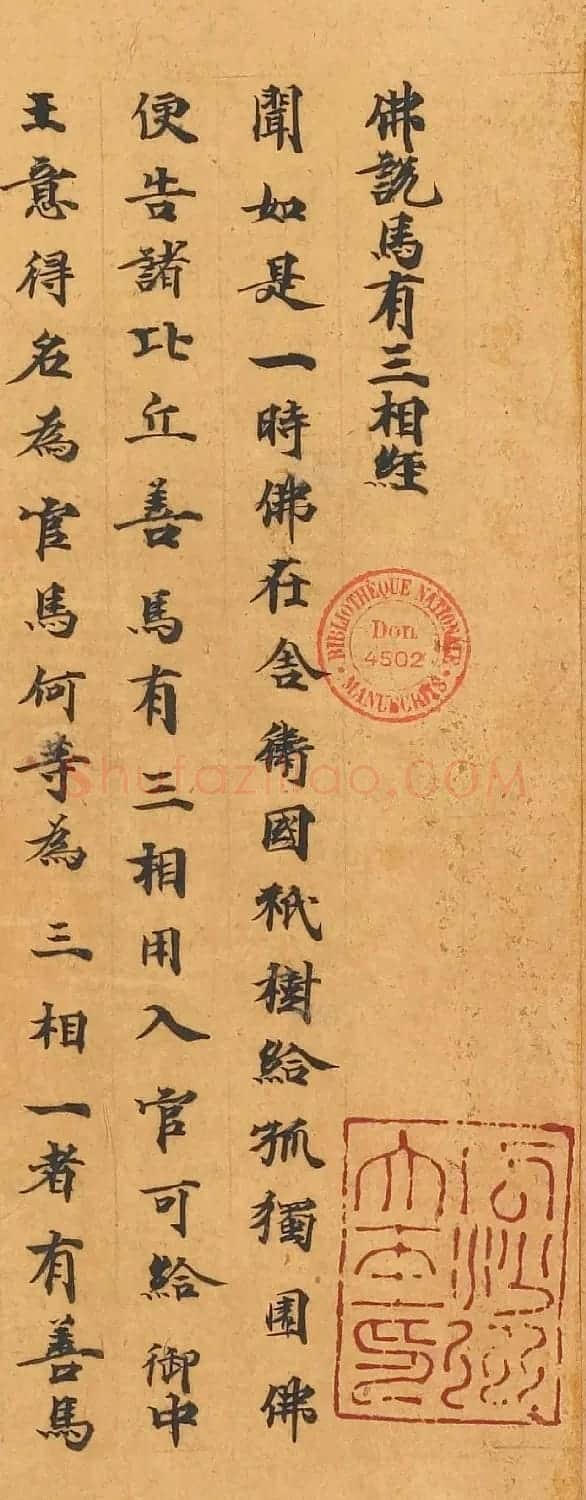 佛說馬有三相經
聞如是一時佛在舍衛國祇樹給孤獨園佛
便告諸比丘善馬有三相用入官可給御中
王意得名為官馬何等為三相一者有善馬
BIBLIOTHÈQUE NATIONALE
MANUSCRITS
Don
4502
shufaziliao.COM